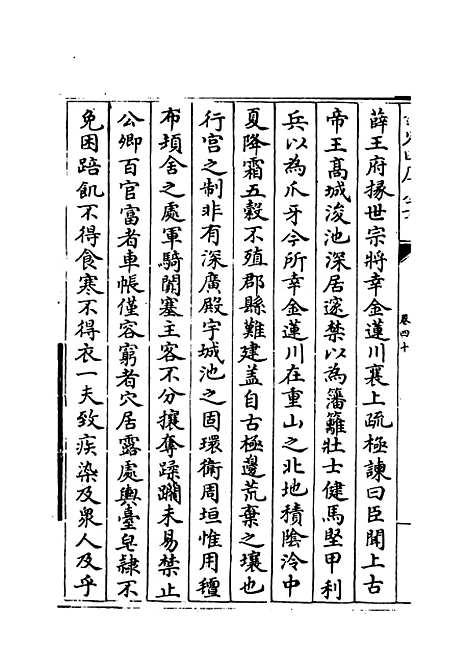 卷四十
薛王府掾世宗將幸金蓮川襄上疏極諫曰臣聞上古
帝王髙城浚池深居邃禁以為籓籬壯士健馬堅甲利
兵以為爪牙今所幸金蓮川在重山之北地積陰泠中
夏降霜五穀不殖郡縣難建盖自古極邊荒棄之壤也
行宫之制非有深廣殿宇城池之固環衛周垣惟用氊
布頓舍之處軍騎閴塞主客不分攘奪蹂躙未易禁止
公卿百官富者車帳僅容窮者穴居露處輿臺皂隷不
免困踣飢不得食寒不得衣一夫致疾染及衆人及乎